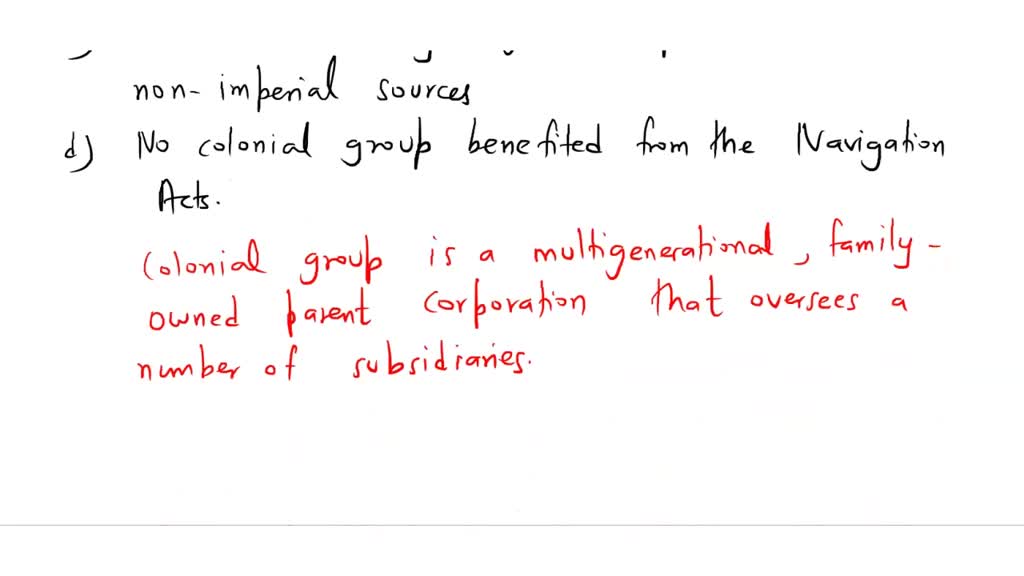 non-imperial sources
d) No colonial group benefited from the Navigation
Acts.
Colonial group is a multigenerational, family-
owned parent corporation that oversees a
number of subsidiaries.